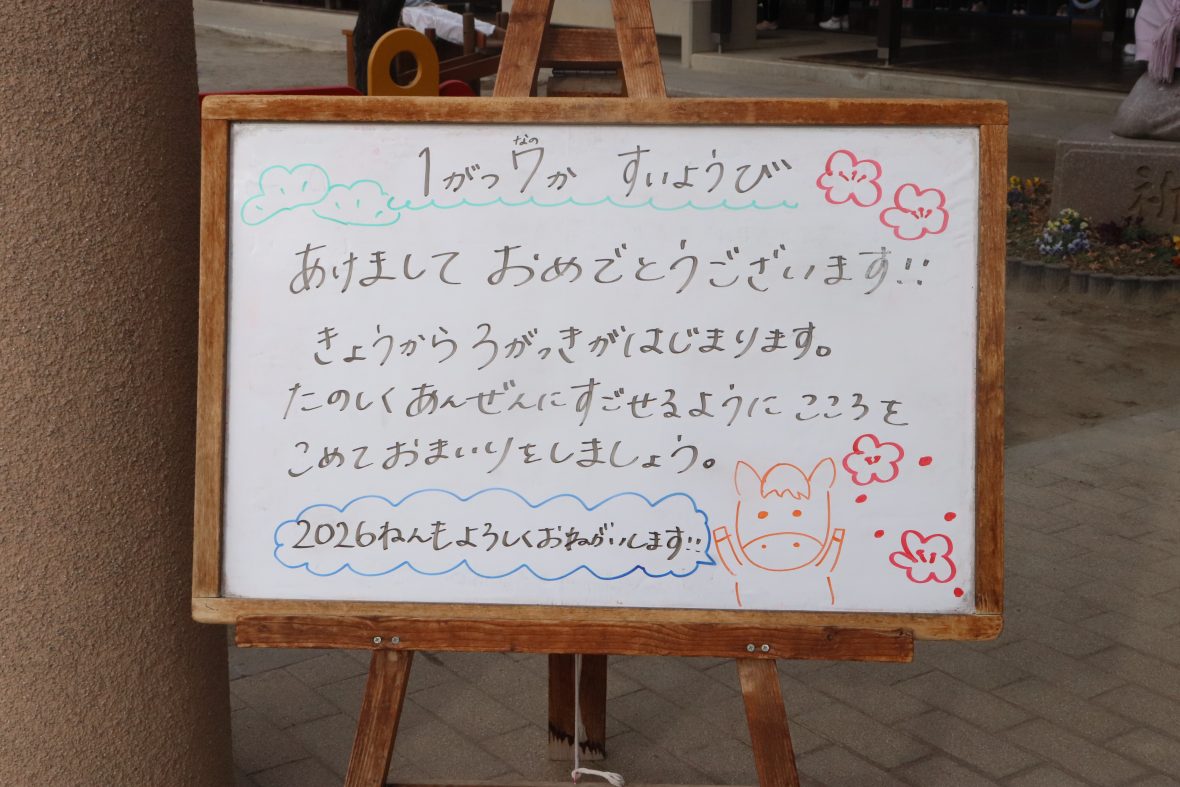 1がつ7か すいようび
なの
あけまして おめでとうございます!!
きょうから3がっきがはじまります。
たのしくあんぜんにすごせるように こころを
こめておまいりをしましょう。
2026ねんもよろしくおねがいします!!